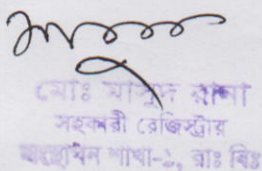 মোঃ মাসুদ রানা
সহকারী রেজিস্ট্রার
শাখা-১, রাঃ বিঃ